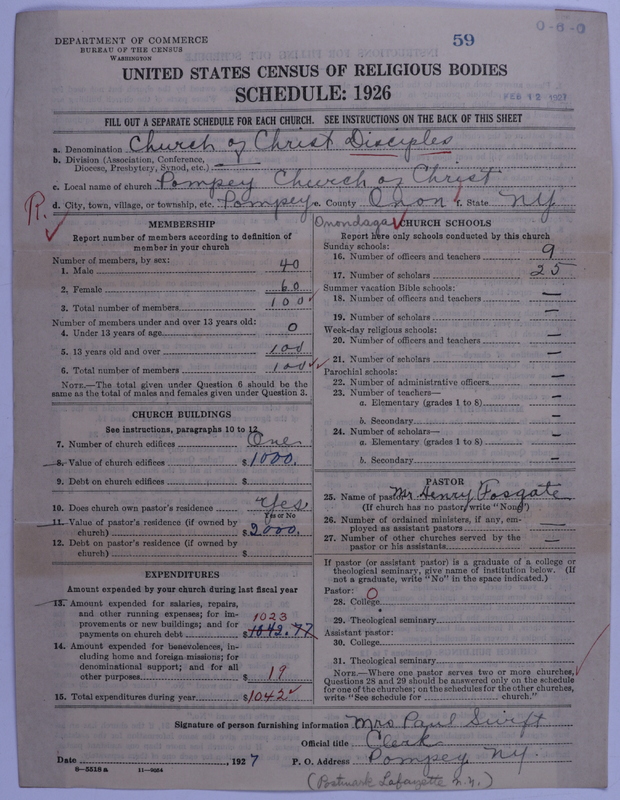 DEPARTMENT OF COMMERCE
BUREAU OF THE CENSUS
WASHINGTON
59
0-6-0
UNITED STATES CENSUS OF RELIGIOUS BODIES
SCHEDULE: 1926
FEB 12 1927
FILL OUT A SEPARATE SCHEDULE FOR EACH CHURCH. SEE INSTRUCTIONS ON THE BACK OF THIS SHEET
a. Denomination Church of Christ Disciples
b. Division (Association, Conference, Diocese, Presbytery, Synod, etc.) —
c. Local name of church Pompey Church of Christ
R. d. City, town, village, or township, etc. Pompey e. County Onon f. State NY
Onondaga
MEMBERSHIP
Report number of members according to definition of
member in your church
Number of members, by sex:
1. Male 40
2. Female 60
3. Total number of members 100
Number of members under and over 13 years old:
4. Under 13 years of age 0
5. 13 years old and over 100
6. Total number of members 100
NOTE.—The total given under Question 6 should be the
same as the total of males and females given under Question 3.
CHURCH BUILDINGS
See instructions, paragraphs 10 to 12
7. Number of church edifices One
8. Value of church edifices $ 1000.
9. Debt on church edifices $
10. Does church own pastor's residence Yes
Yes or No
11. Value of pastor's residence (if owned by
church) $ 2000.
12. Debt on pastor's residence (if owned by
church) $
EXPENDITURES
Amount expended by your church during last fiscal year
13. Amount expended for salaries, repairs,
and other running expenses; for im-
provements or new buildings; and for
payments on church debt $ 1042.77
1023
14. Amount expended for benevolences, in-
cluding home and foreign missions; for
denominational support; and for all
other purposes $ 19
15. Total expenditures during year $ 1042
CHURCH SCHOOLS
Report here only schools conducted by this church
Sunday schools:
16. Number of officers and teachers 9
17. Number of scholars 25
Summer vacation Bible schools:
18. Number of officers and teachers —
19. Number of scholars —
Week-day religious schools:
20. Number of officers and teachers —
21. Number of scholars —
Parochial schools:
22. Number of administrative officers —
23. Number of teachers—
a. Elementary (grades 1 to 8) —
b. Secondary —
24. Number of scholars—
a. Elementary (grades 1 to 8) —
b. Secondary —
PASTOR
25. Name of pastor Mr Henry Fosgate
(If church has no pastor, write "None")
26. Number of ordained ministers, if any, em-
ployed as assistant pastors —
27. Number of other churches served by the
pastor or his assistants —
If pastor (or assistant pastor) is a graduate of a college or
theological seminary, give name of institution below. (If
not a graduate, write "No" in the space indicated.)
Pastor: 0
28. College
29. Theological seminary
Assistant pastor:
30. College
31. Theological seminary
NOTE.—Where one pastor serves two or more churches,
Questions 28 and 29 should be answered only on the schedule
for one of the churches; on the schedules for the other churches,
write "See schedule for church."
Signature of person furnishing information Mrs Paul Swift
Official title Clerk
Date , 1927 P. O. Address Pompey NY.
8—5518a 11—9054
(Postmark Lafayette N.Y.)